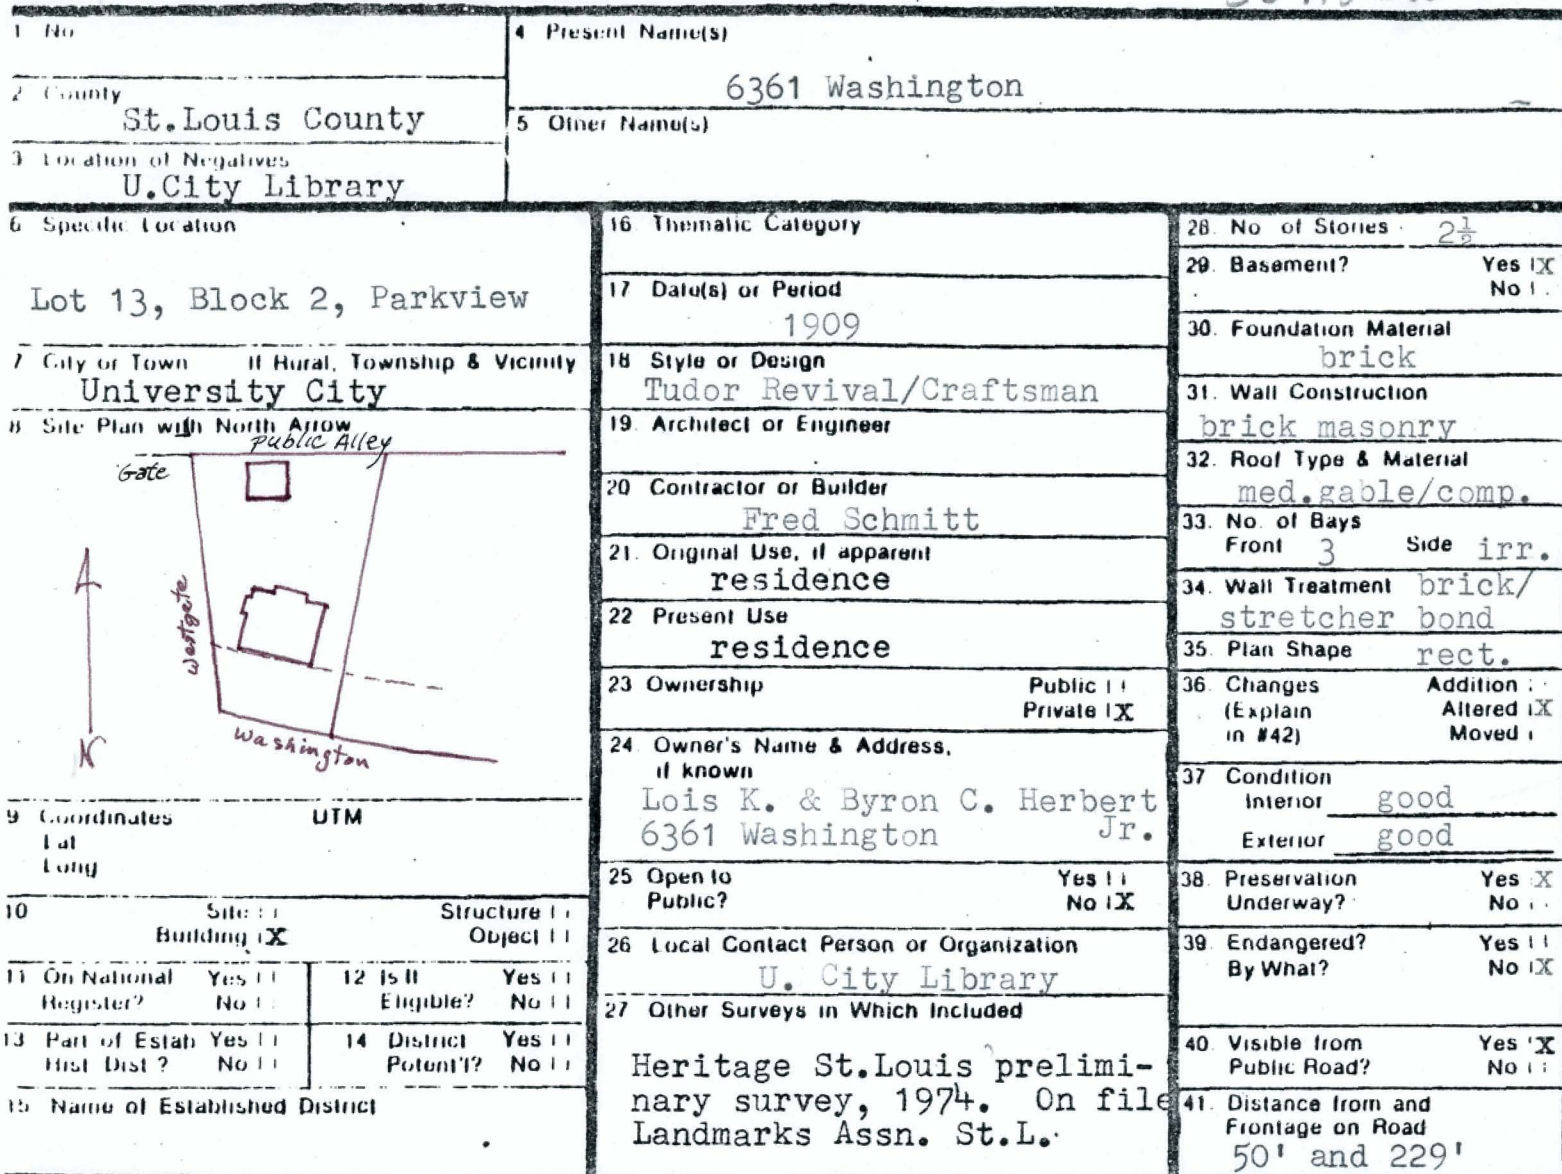 1 No
4 Present Name(s)
6361 Washington
2 County
St.Louis County
5 Other Name(s)
3 Location of Negatives
U.City Library
6 Specific Location
Lot 13, Block 2, Parkview
7 City or Town If Rural, Township & Vicinity
University City
8 Site Plan with North Arrow
Public Alley
Gate
Westgate
Washington
N
9 Coordinates UTM
Lat
Long
10 Site
Structure
Building X
Object
11 On National Register? Yes
No
12 Is It Eligible? Yes
No
13 Part of Estab Hist Dist ? Yes
No
14 District Potent'l? Yes
No
15 Name of Established District
16 Thematic Category
17 Date(s) or Period
1909
18 Style or Design
Tudor Revival/Craftsman
19. Architect or Engineer
20 Contractor or Builder
Fred Schmitt
21. Original Use, if apparent
residence
22 Present Use
residence
23 Ownership Public
Private X
24 Owner's Name & Address,
if known
Lois K. & Byron C. Herbert
6361 Washington Jr.
25 Open to Yes
Public? No X
26 Local Contact Person or Organization
U. City Library
27 Other Surveys in Which Included
Heritage St.Louis prelimi-
nary survey, 1974. On file
Landmarks Assn. St.L.
28. No of Stories 2½
29. Basement? Yes X
No
30. Foundation Material
brick
31. Wall Construction
brick masonry
32. Roof Type & Material
med.gable/comp.
33. No. of Bays
Front 3 Side irr.
34. Wall Treatment brick/
stretcher bond
35. Plan Shape rect.
36. Changes Addition
(Explain Altered X
in #42) Moved
37 Condition
Interior good
Exterior good
38. Preservation Yes X
Underway? No
39. Endangered? Yes
By What? No X
40. Visible from Yes X
Public Road? No
41. Distance from and
Frontage on Road
50' and 229'